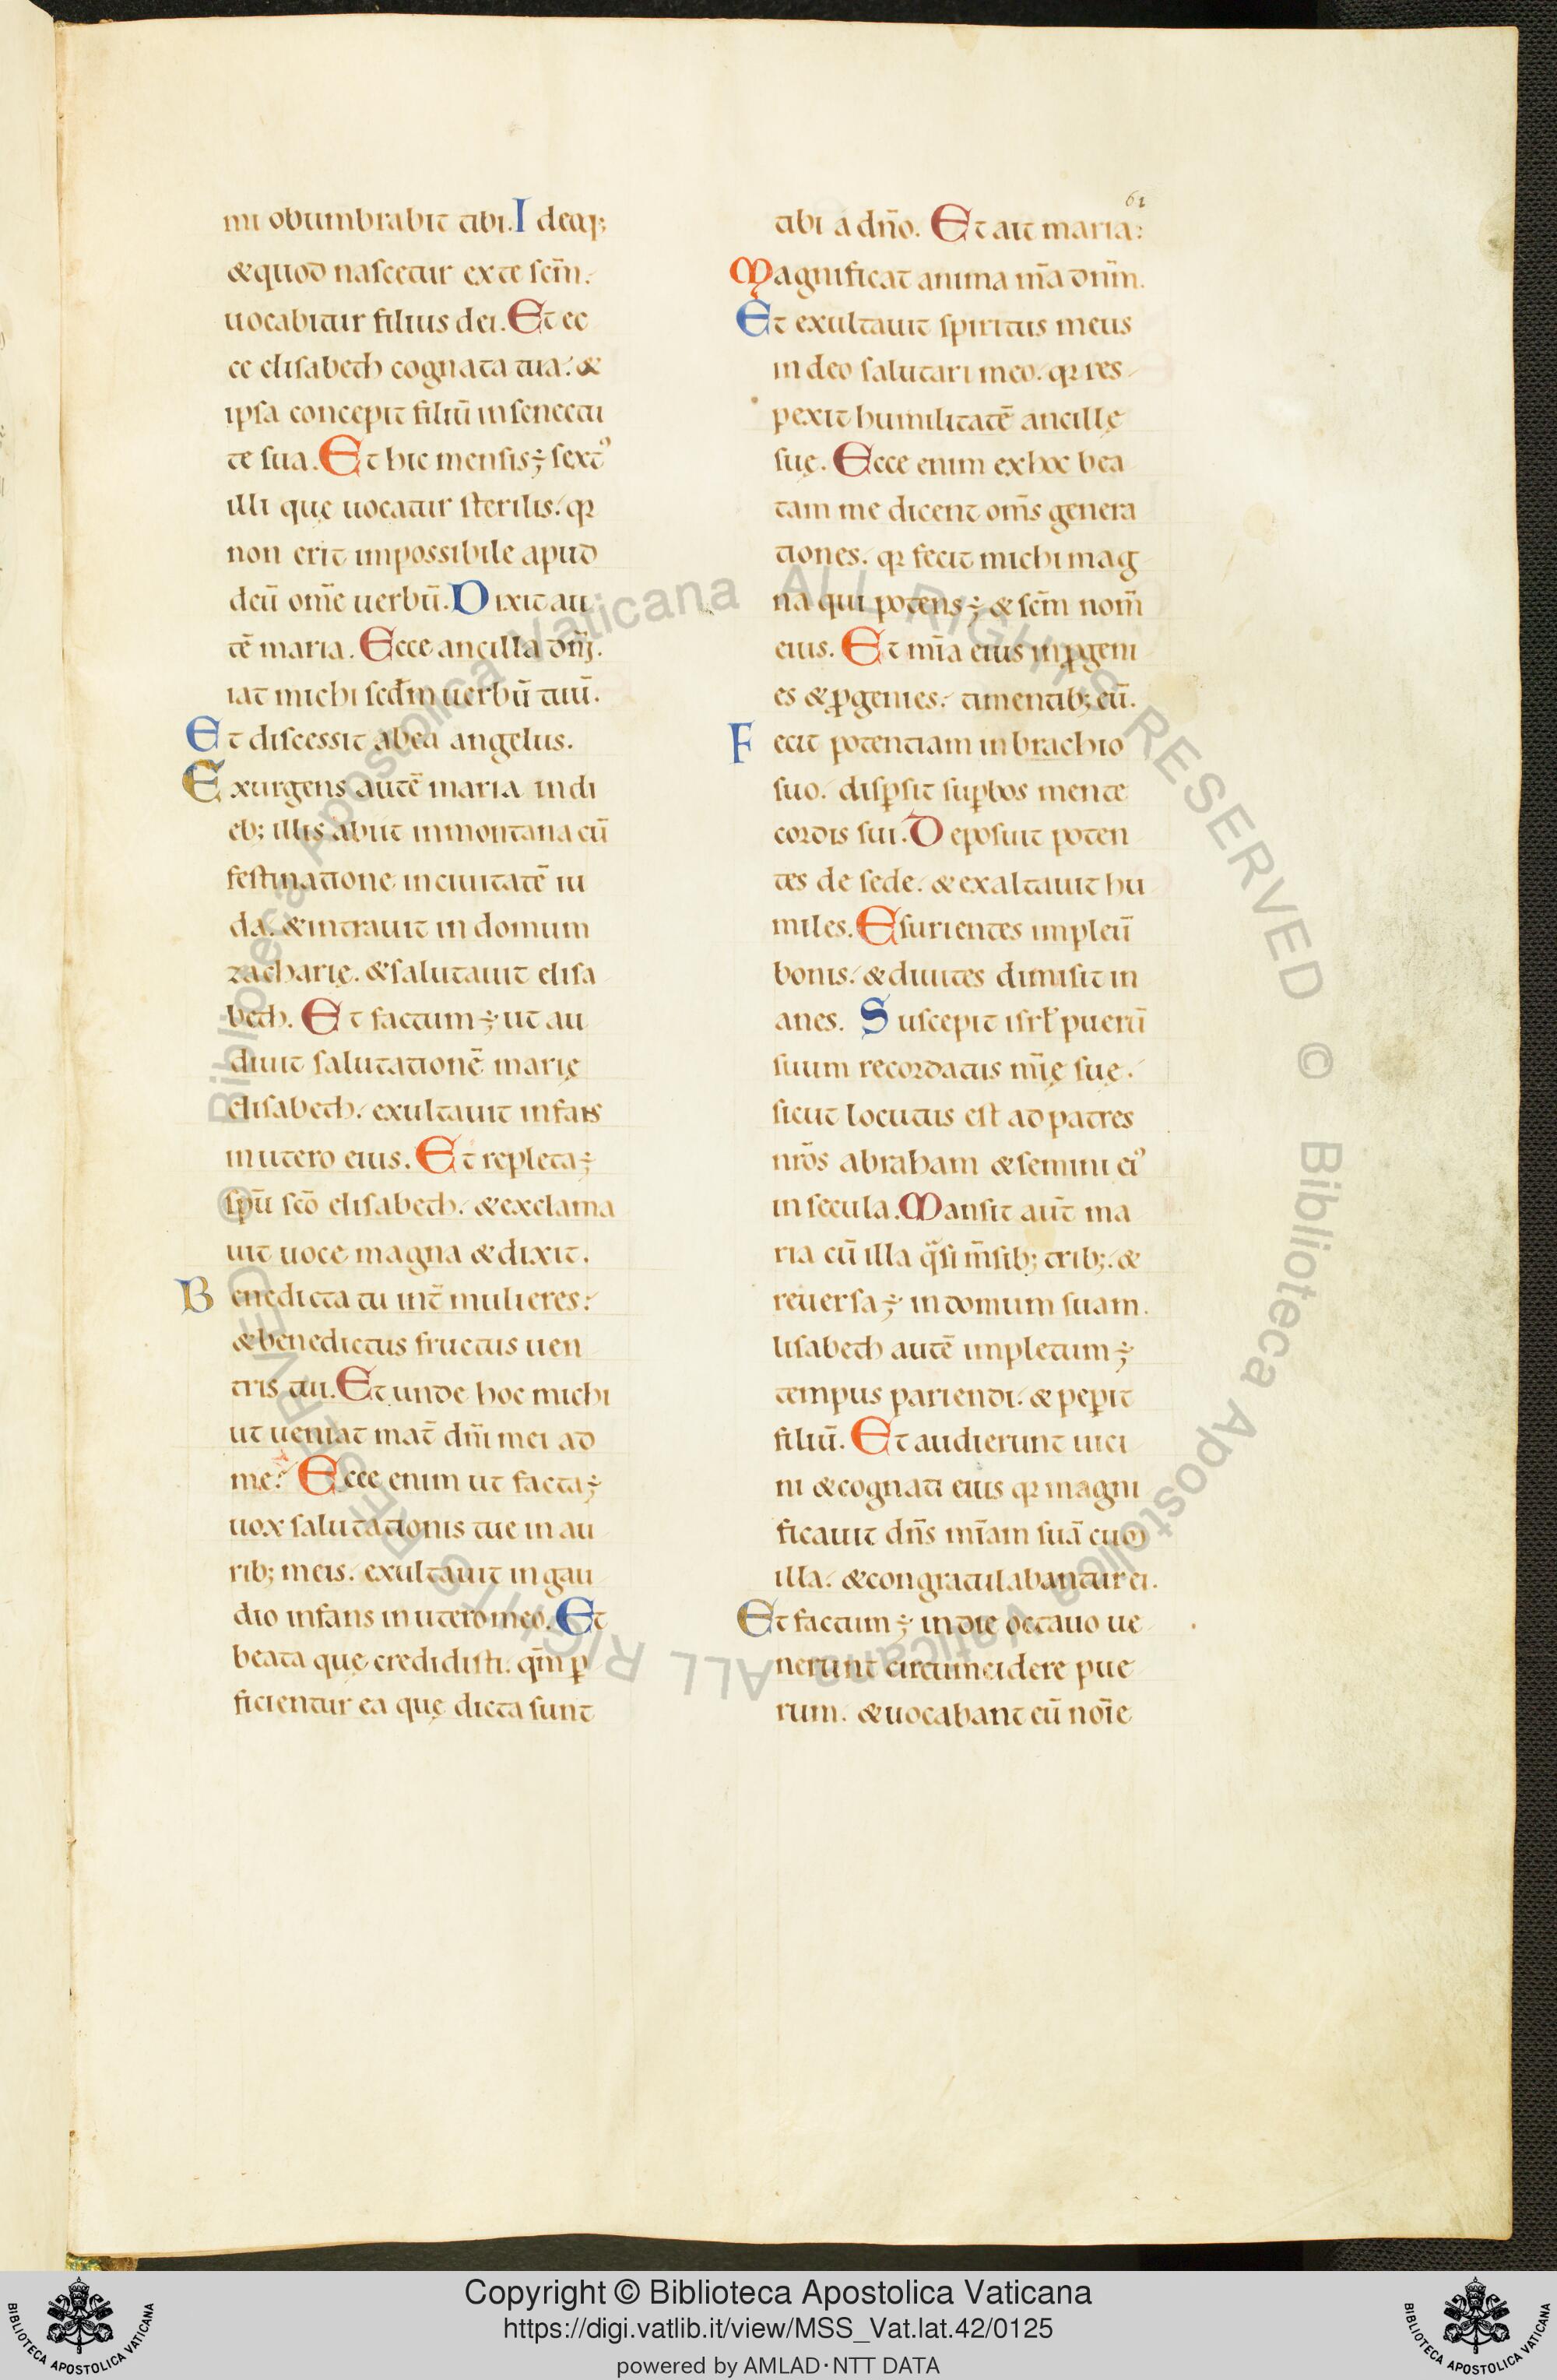 mi obumbrabit tibi. Ideoq;
& quod nascetur ex te scm̄.
uocabitur filius dei. Et ec
ce elisabeth cognata tua. &
ipsa concepit filiū in senectu
te sua. Et hic mensis ÷ sextꝰ
illi que uocatur sterilis. qꝛ
non erit impossibile apud
deū om̄e uerbū. Dixit au
tē maria. Ecce ancilla dn̄i.
iat michi scdm̄ uerbū tuū.
Et discessit ab ea angelus.
Exurgens autē maria in di
eb; illis abiit in montana cū
festinatione in ciuitatē iu
da. & intrauit in domum
zacharię. & salutauit elisa
beth. Et factum ÷ ut au
diuit salutationē marię
elisabeth. exultauit infans
in utero eius. Et repleta ÷
spū scō elisabeth. & exclama
uit uoce magna & dixit.
Benedicta tu int̄ mulieres.
& benedictus fructus uen
tris tui. Et unde hoc michi
ut ueniat mat̄ dn̄i mei ad
me? Ecce enim ut facta ÷
uox salutationis tue in au
rib; meis. exultauit in gau
dio infans in utero meo. Et
beata quę credidisti. qm̄ ꝑ
ficientur ea quę dicta sunt
61
tibi a dn̄o. Et ait maria:
Magnificat anima m̄a dnm̄.
Et exultauit spiritus meus
in deo salutari meo. qꝛ res
pexit humilitatē ancillę
suę. Ecce enim ex hoc bea
tam me dicent om̄s genera
tiones. qꝛ fecit michi mag
na qui potens ÷ & scm̄ nom̄
eius. Et mīa eius in ꝓgeni
es & ꝓgenies. timentib; eū.
Fecit potentiam in brachio
suo. disꝑsit suꝑbos mente
cordis sui. Deposuit poten
tes de sede. & exaltauit hu
miles. Esurientes impleū
bonis. & diuites dimisit in
anes. Suscepit isrl̄ puerū
suum recordatus mīę suę.
sicut locutus est ad patres
nr̄os abraham & semini eiꝰ
in secula. Mansit aut̄ ma
ria cū illa qᵃsi m̄sib; trib;. &
reuersa ÷ in domum suam.
lisabeth autē impletum ÷
tempus pariendi. & peꝑit
filiū. Et audierunt uici
ni & cognati eius qꝛ magni
ficauit dn̄s mīam suā cum
illa. & congratulabantur ei.
Et factum ÷ in die octauo ue
nerunt circumcidere pue
rum. & uocabant eū noīe
Biblioteca Apostolica Vaticana ALL RIGHTS RESERVED © Biblioteca Apostolica Vaticana ALL RIGHTS RESERVED ©
Copyright © Biblioteca Apostolica Vaticana
https://digi.vatlib.it/view/MSS_Vat.lat.42/0125
powered by AMLAD·NTT DATA
BIBLIOTECA APOSTOLICA VATICANA
BIBLIOTECA APOSTOLICA VATICANA